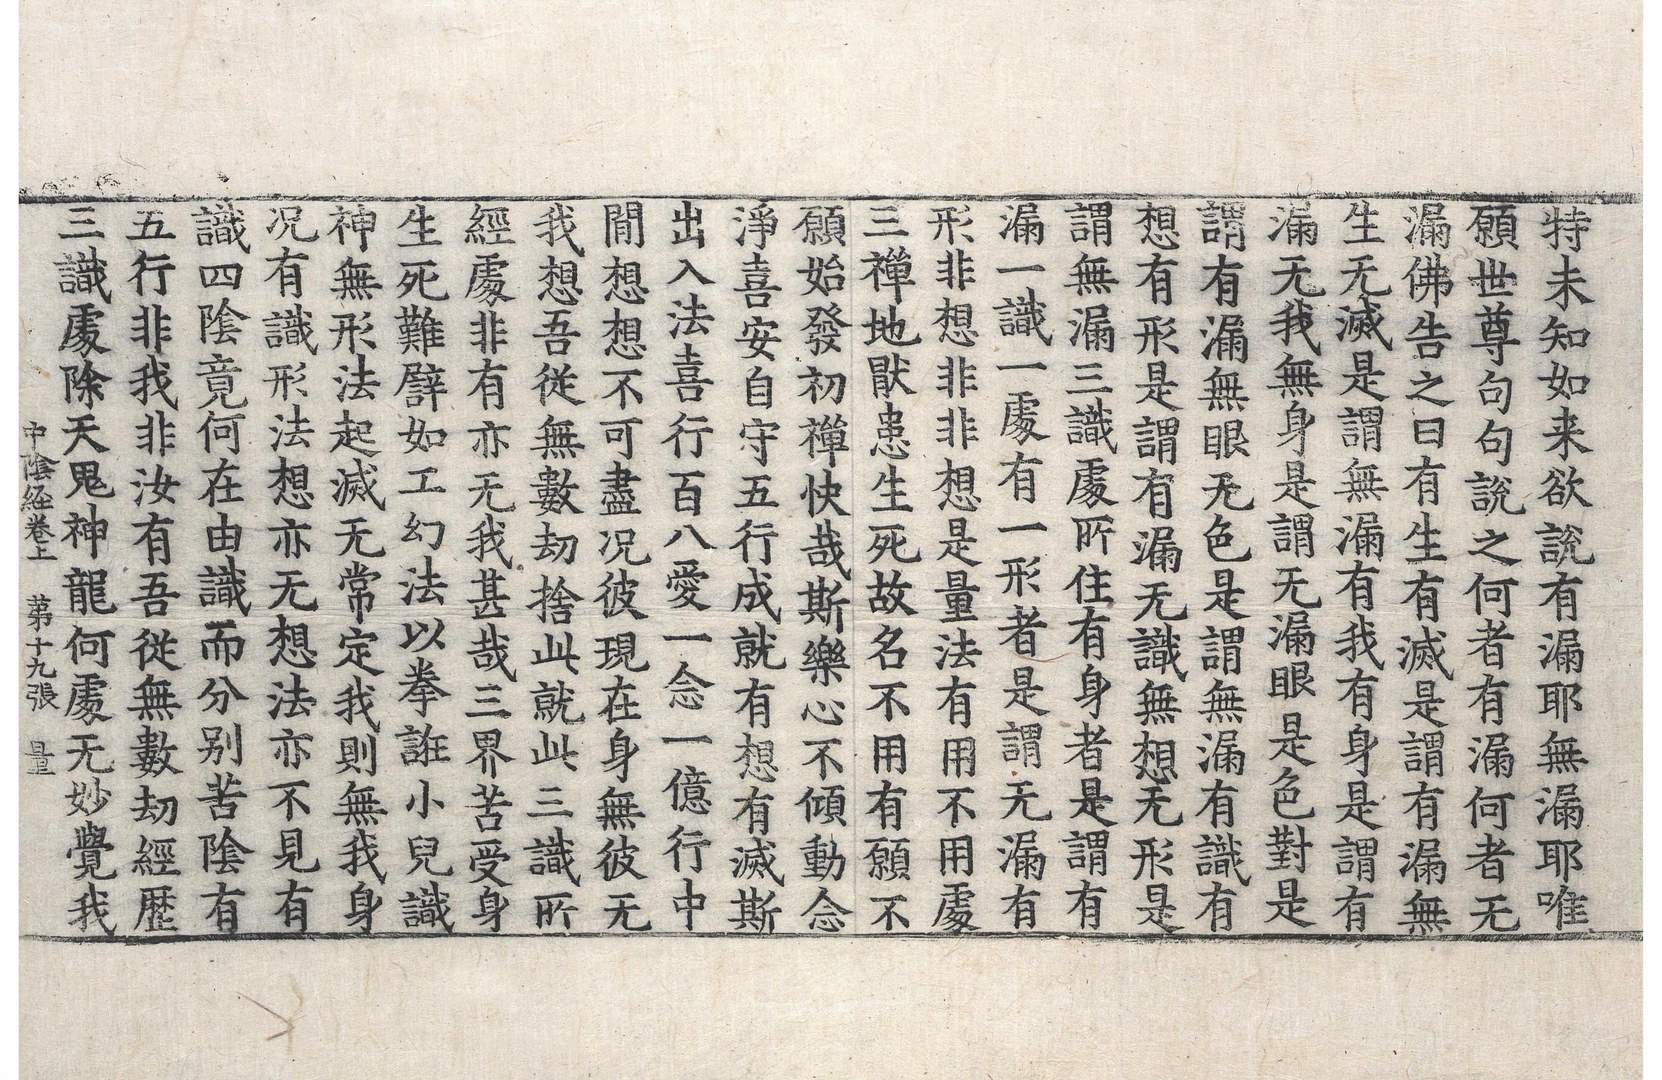 特未知如来欲說有漏耶無漏耶唯
願世尊句句說之何者有漏何者无
漏佛告之曰有生有滅是謂有漏無
生无滅是謂無漏有我有身是謂有
漏无我無身是謂无漏眼是色對是
謂有漏無眼无色是謂無漏有識有
想有形是謂有漏无識無想无形是
謂無漏三識處所住有身者是謂有
漏一識一處有一形者是謂无漏有
形非想非非想是量法有用不用處
三禪地猒患生死故名不用有願不
願始發初禪快哉斯樂心不傾動念
淨喜安自守五行成就有想有滅斯
出入法喜行百八愛一念一億行中
閒想想不可盡况彼現在身無彼无
我想吾從無數劫捨此就此三識所
經處非有亦无我甚哉三界苦受身
生死難譬如工幻法以拳誑小兒識
神無形法起滅无常定我則無我身
况有識形法想亦无想法亦不見有
識四陰竟何在由識而分别苦陰有
五行非我非汝有吾從無數劫經歷
三識處除天鬼神龍何處无妙覺我
中陰経卷上　第十九張　量